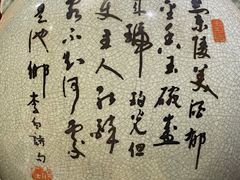 蘭陵美酒郁
金香玉碗盛
來琥珀光但
使主人能醉
客不知何處
是他鄉 李白詩句